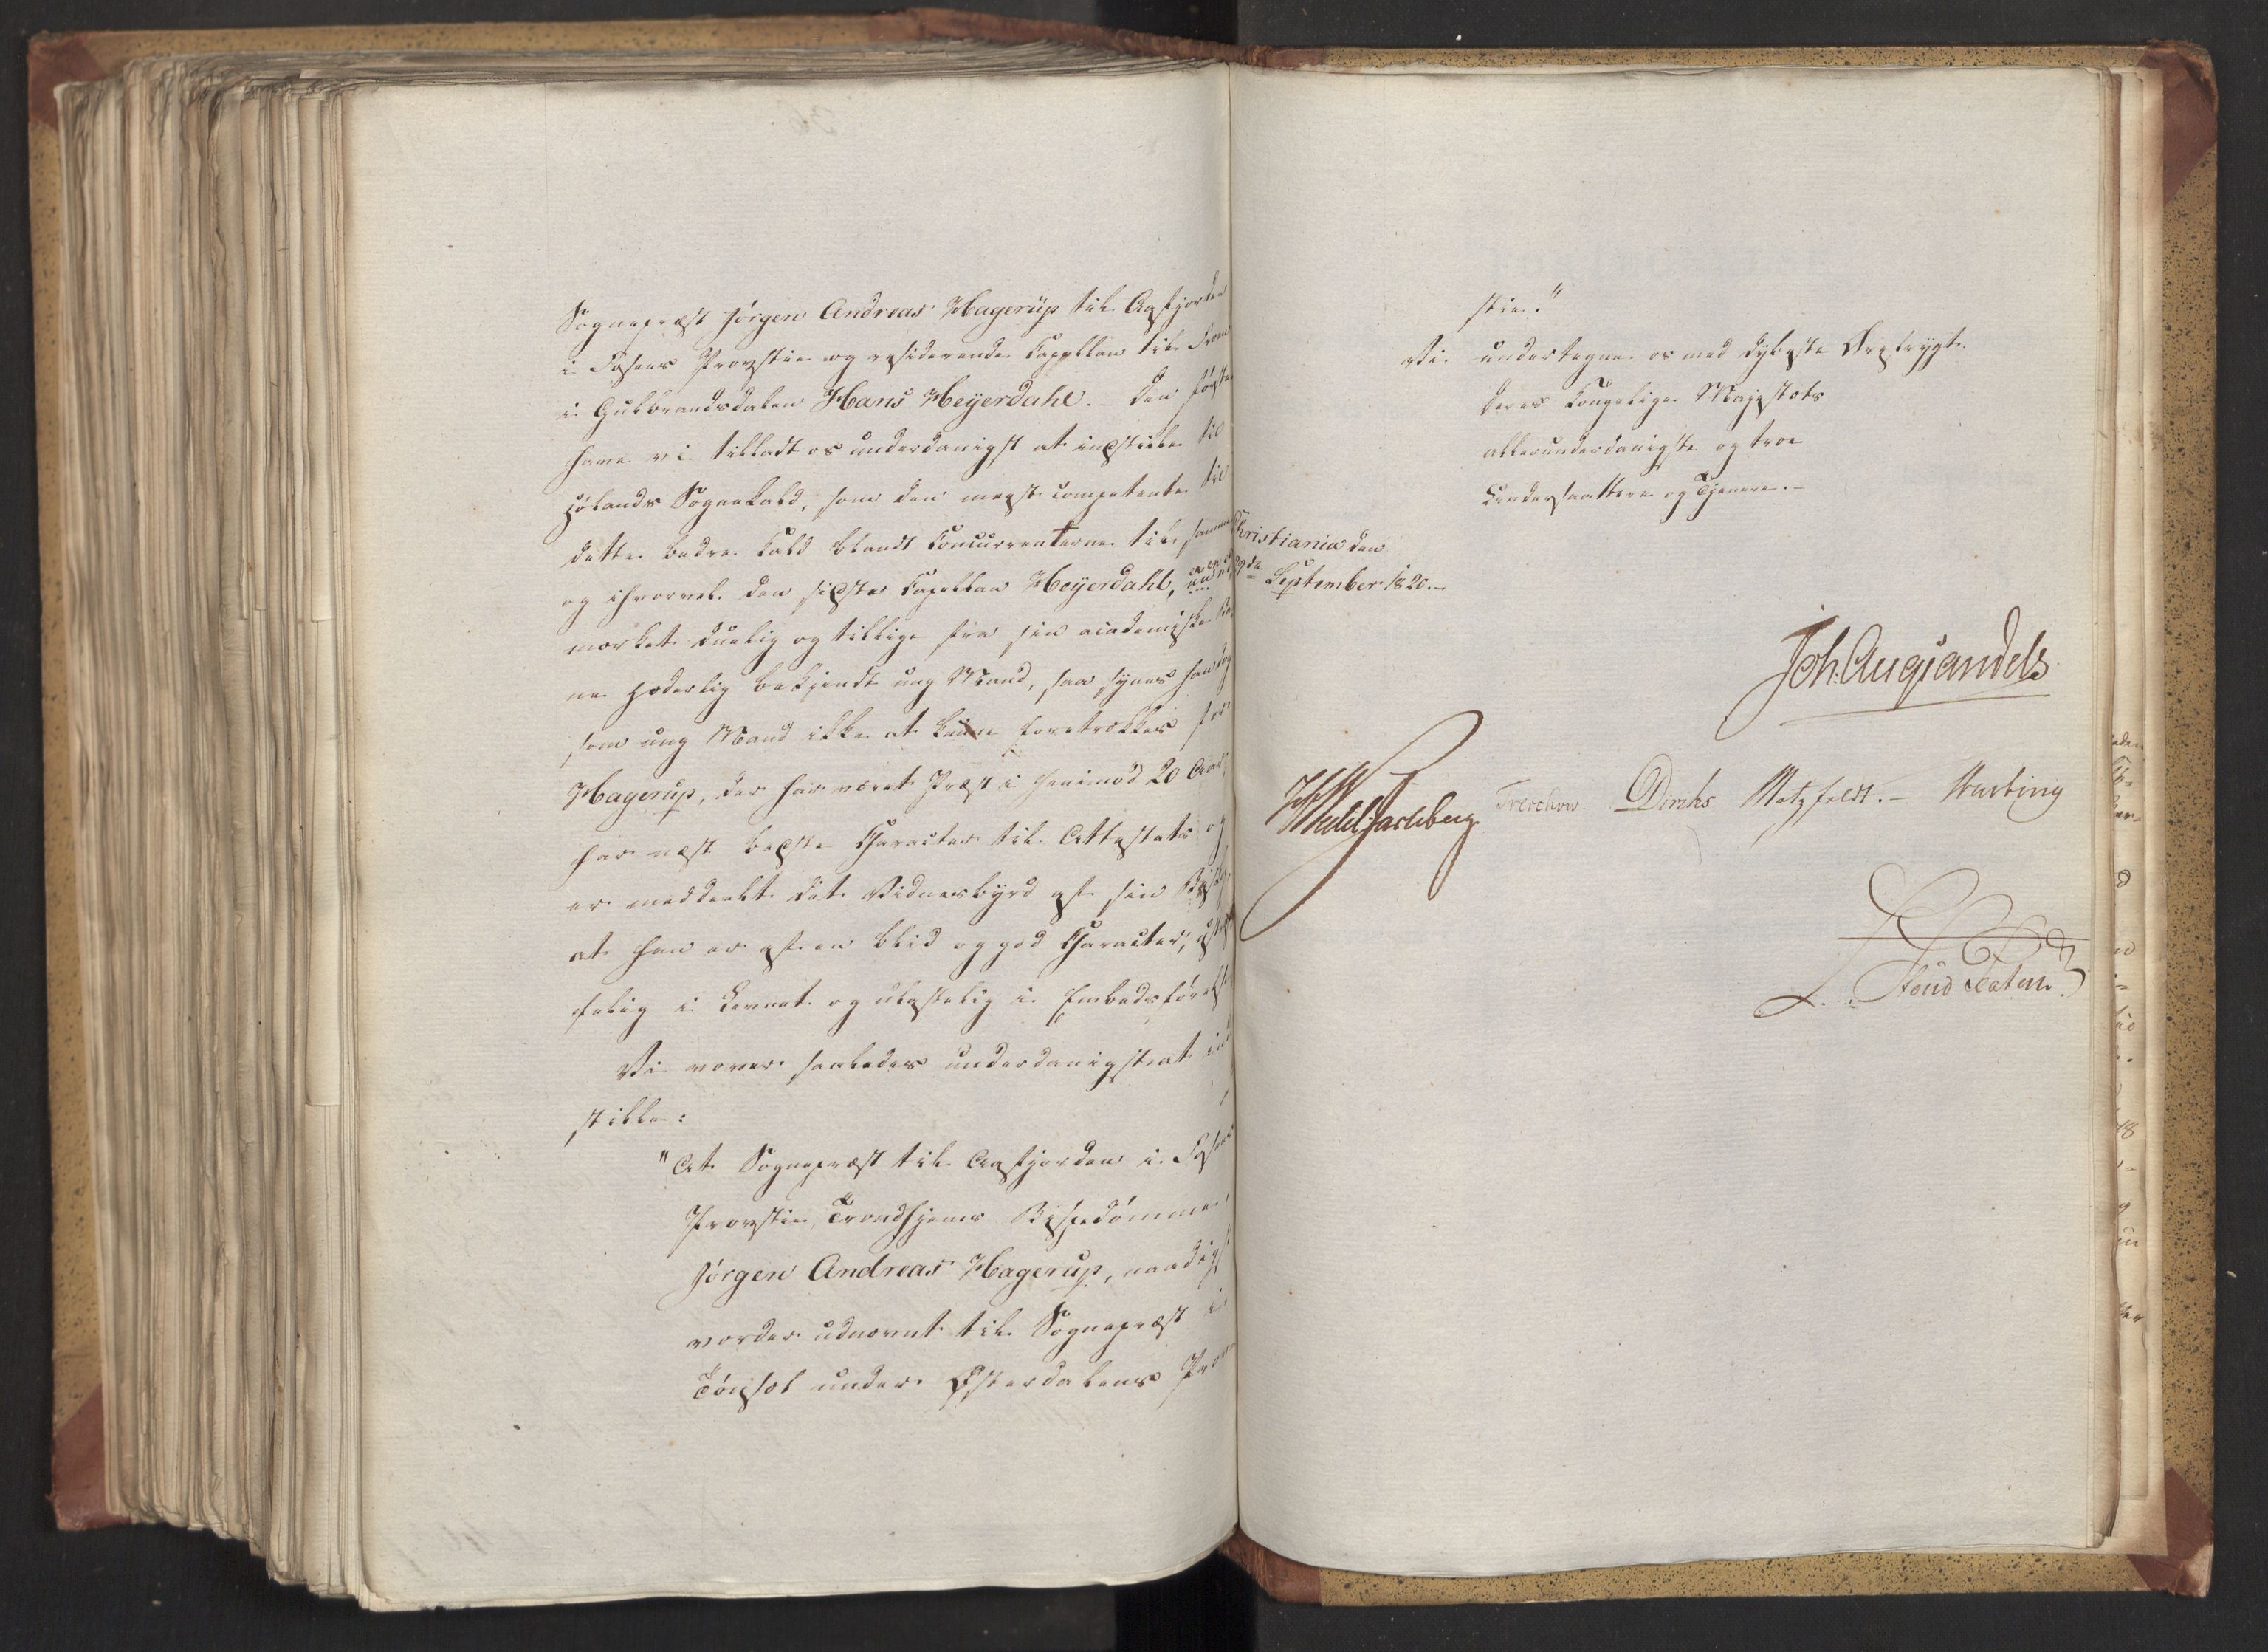 Sognepræst Jörgen Andreas Hagerup til Aafjorden
i Fosens Provstie og residerende Capellan til Fron
i Gulbrandsdalen Hans Heyerdahl. Den første
have vi tilladt os underdanigst at indstille til
Hölands Sognekald, som den meest competente til
dette bedre Kald blandt Concurrenterne til samme
og ihvorvel den sidste Capellan Heyerdahl, er en ud
mærket duelig og tillige fra sin academiske
ne hæderlig bekjendt ung Mand, saa synes han dog
som ung Mand ikke at kunne foretrækkes for
Hagerup, der har været Præst i henimod 20 Aar,
har næst bedste Character til Attestats og
er meddeelt det Vidnesbyrd af sin Bisp,
at han er af en blid og god Character,
felig i Levnet og ulastelig i Embedsförelse
Vi vover saaledes underdanigst at ind
stille:
"At Sognepræst til Aafjorden i Fosens
Provstie, Trondhjems Bispedömme,
Jörgen Andreas Hagerup, naadigst
vorder udnævnt til Sognepræst i
Tönset under Østerdalens Prov
stie."
Vi undertegne os med dybeste Ærefrygt
Deres Kongelige Majestæts
allerunderdanigste og troe
Undersaattere og Tjenere.-
Christiania den
de September 1820.-
Joh: Aug: Sandels
Wedel Jarlsberg Treschow. Diriks Motzfeldt.- Krebting